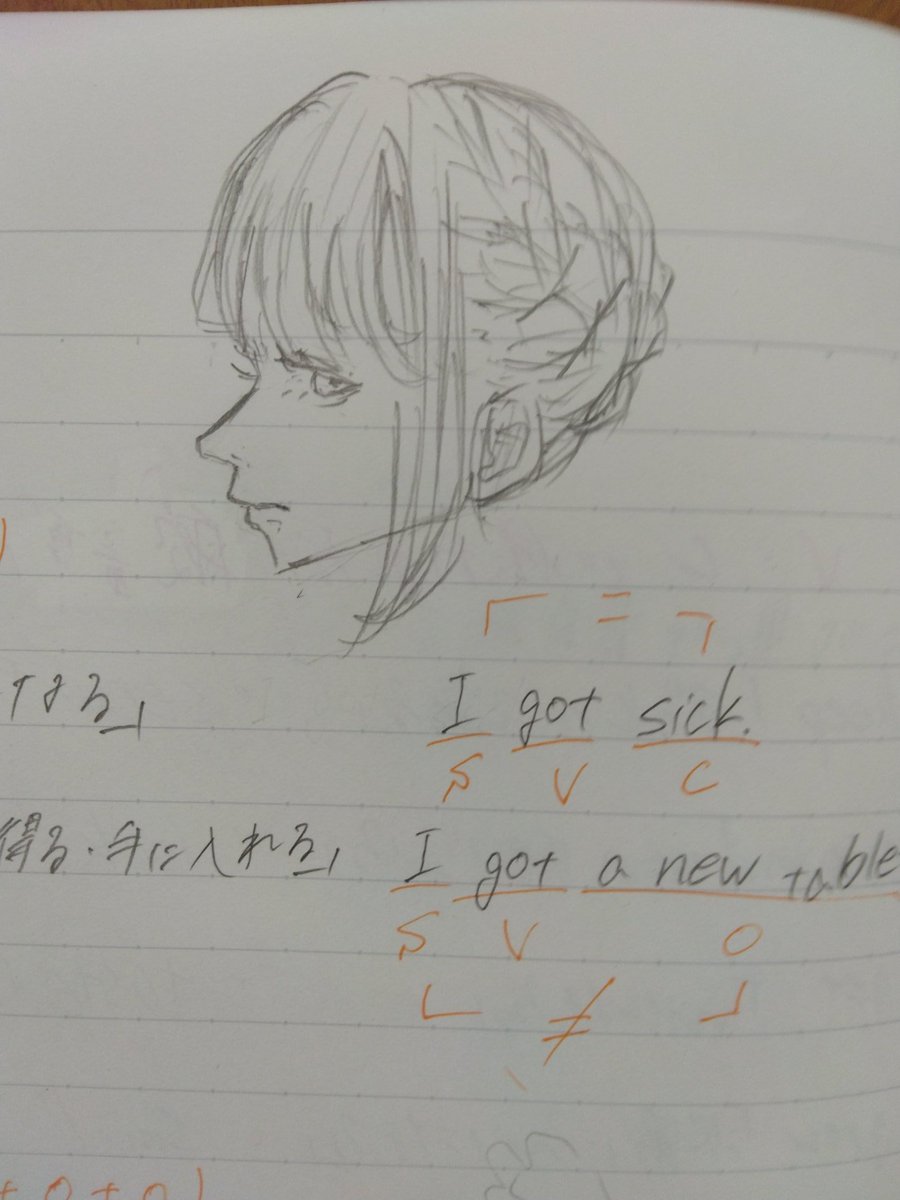 =
なる」 I got sick.
S V C
得る・手に入れる」 I got a new table
S V O
≠
+ O + O)